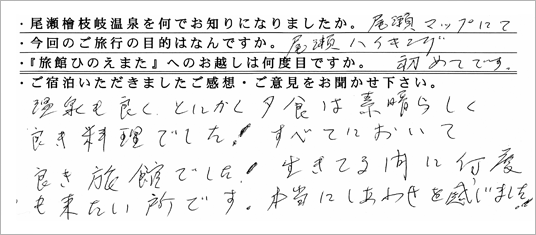 ・尾瀬檜枝岐温泉を何でお知りになりましたか。 尾瀬マップにて
・今回のご旅行の目的はなんですか。 尾瀬ハイキング
・『旅館ひのえまた』へのお越しは何度目ですか。 初めてです。
・ご宿泊いただきましたご感想・ご意見をお聞かせ下さい。
温泉も良く、とにかく夕食は素晴らしく
良き料理でした! すべてにおいて
良き旅館でした! 生きてる内に何度
も来たい所です。本当にしあわせを感じました